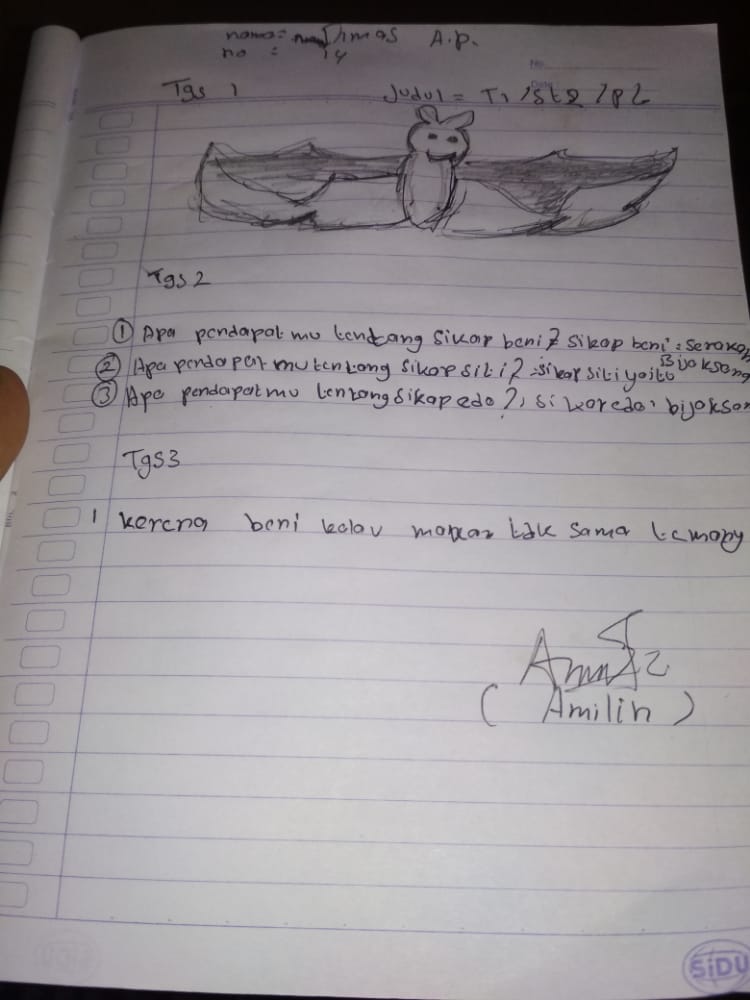 nama = Dimas A.p.
no : 14
No.
Date
Tgs 1 Judul = T1/St2/P2
Tgs2
① Apa pendapat mu tentang sikap beni? sikap beni : serakah
② Apa pendapat mu tentang sikap siti? : sikap siti yaitu Bijaksana
③ Apa pendapatmu tentang sikap edo?, sikap edo : bijaksan
Tgs3
1 karena beni kalau makan tak sama temany
(Amilin)
SiDU